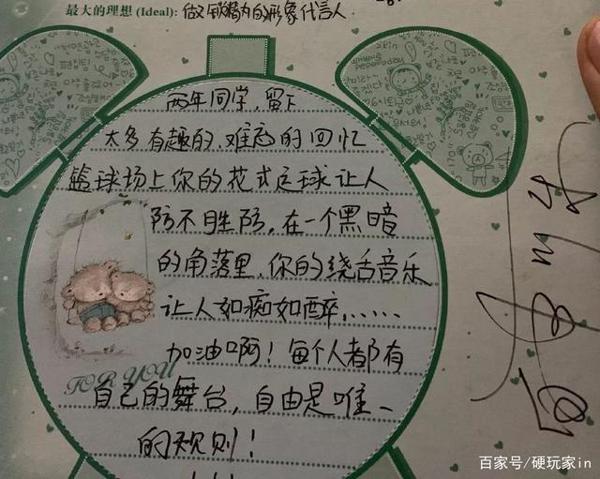 最大的理想 (Ideal): 做 形象代言人
两年同学，留下
太多有趣的、难忘的回忆
篮球场上你的花式运球让人
防不胜防，在一个黑暗
的角落里，你的绕舌音乐
让人如痴如醉，……
加油啊！每个人都有
FOR YOU
自己的舞台，自由是唯一
的规则！
百家号/硬玩家in